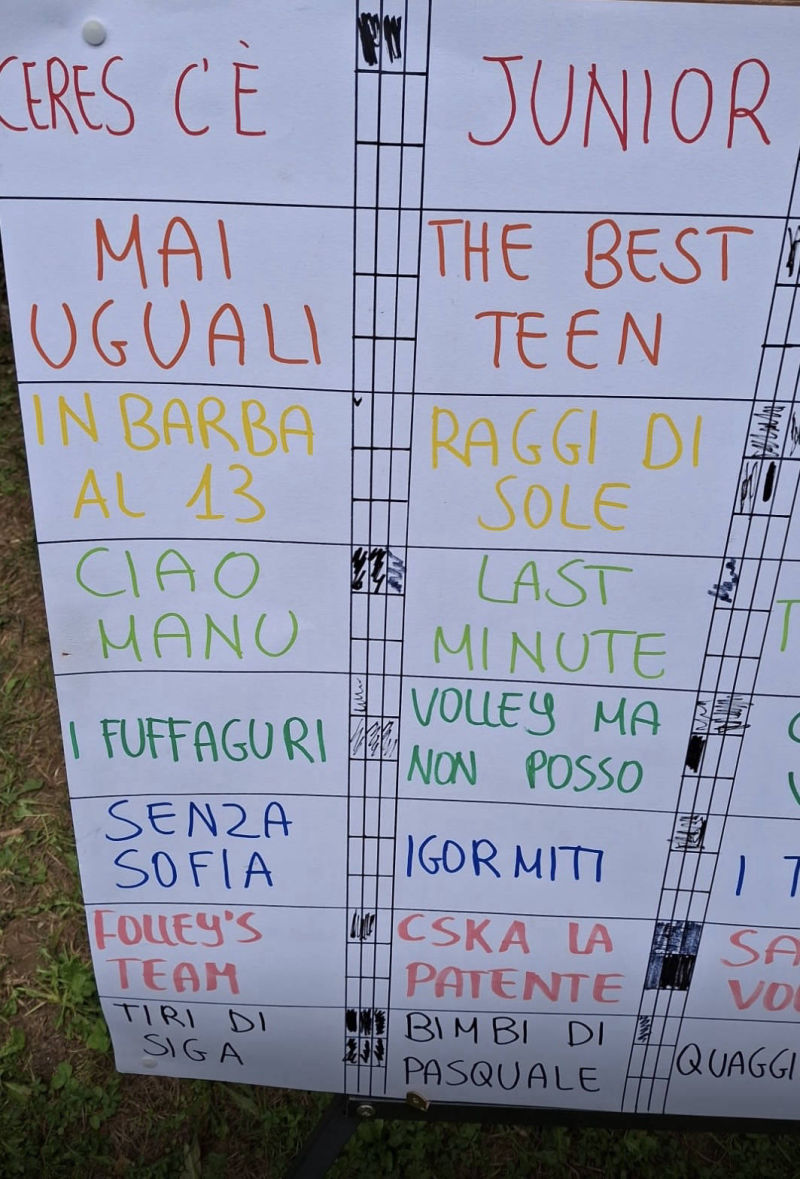 CERES C'È
JUNIOR
MAI
UGUALI
THE BEST
TEEN
IN BARBA
AL 13
RAGGI DI
SOLE
CIAO
MANU
LAST
MINUTE
I FUFFAGURI
VOLLEY MA
NON POSSO
SENZA
SOFIA
IGORMITI
I T
FOLLEY'S
TEAM
CSKA LA
PATENTE
SA
VO
TIRI DI
SIGA
BIMBI DI
PASQUALE
QUAGGI